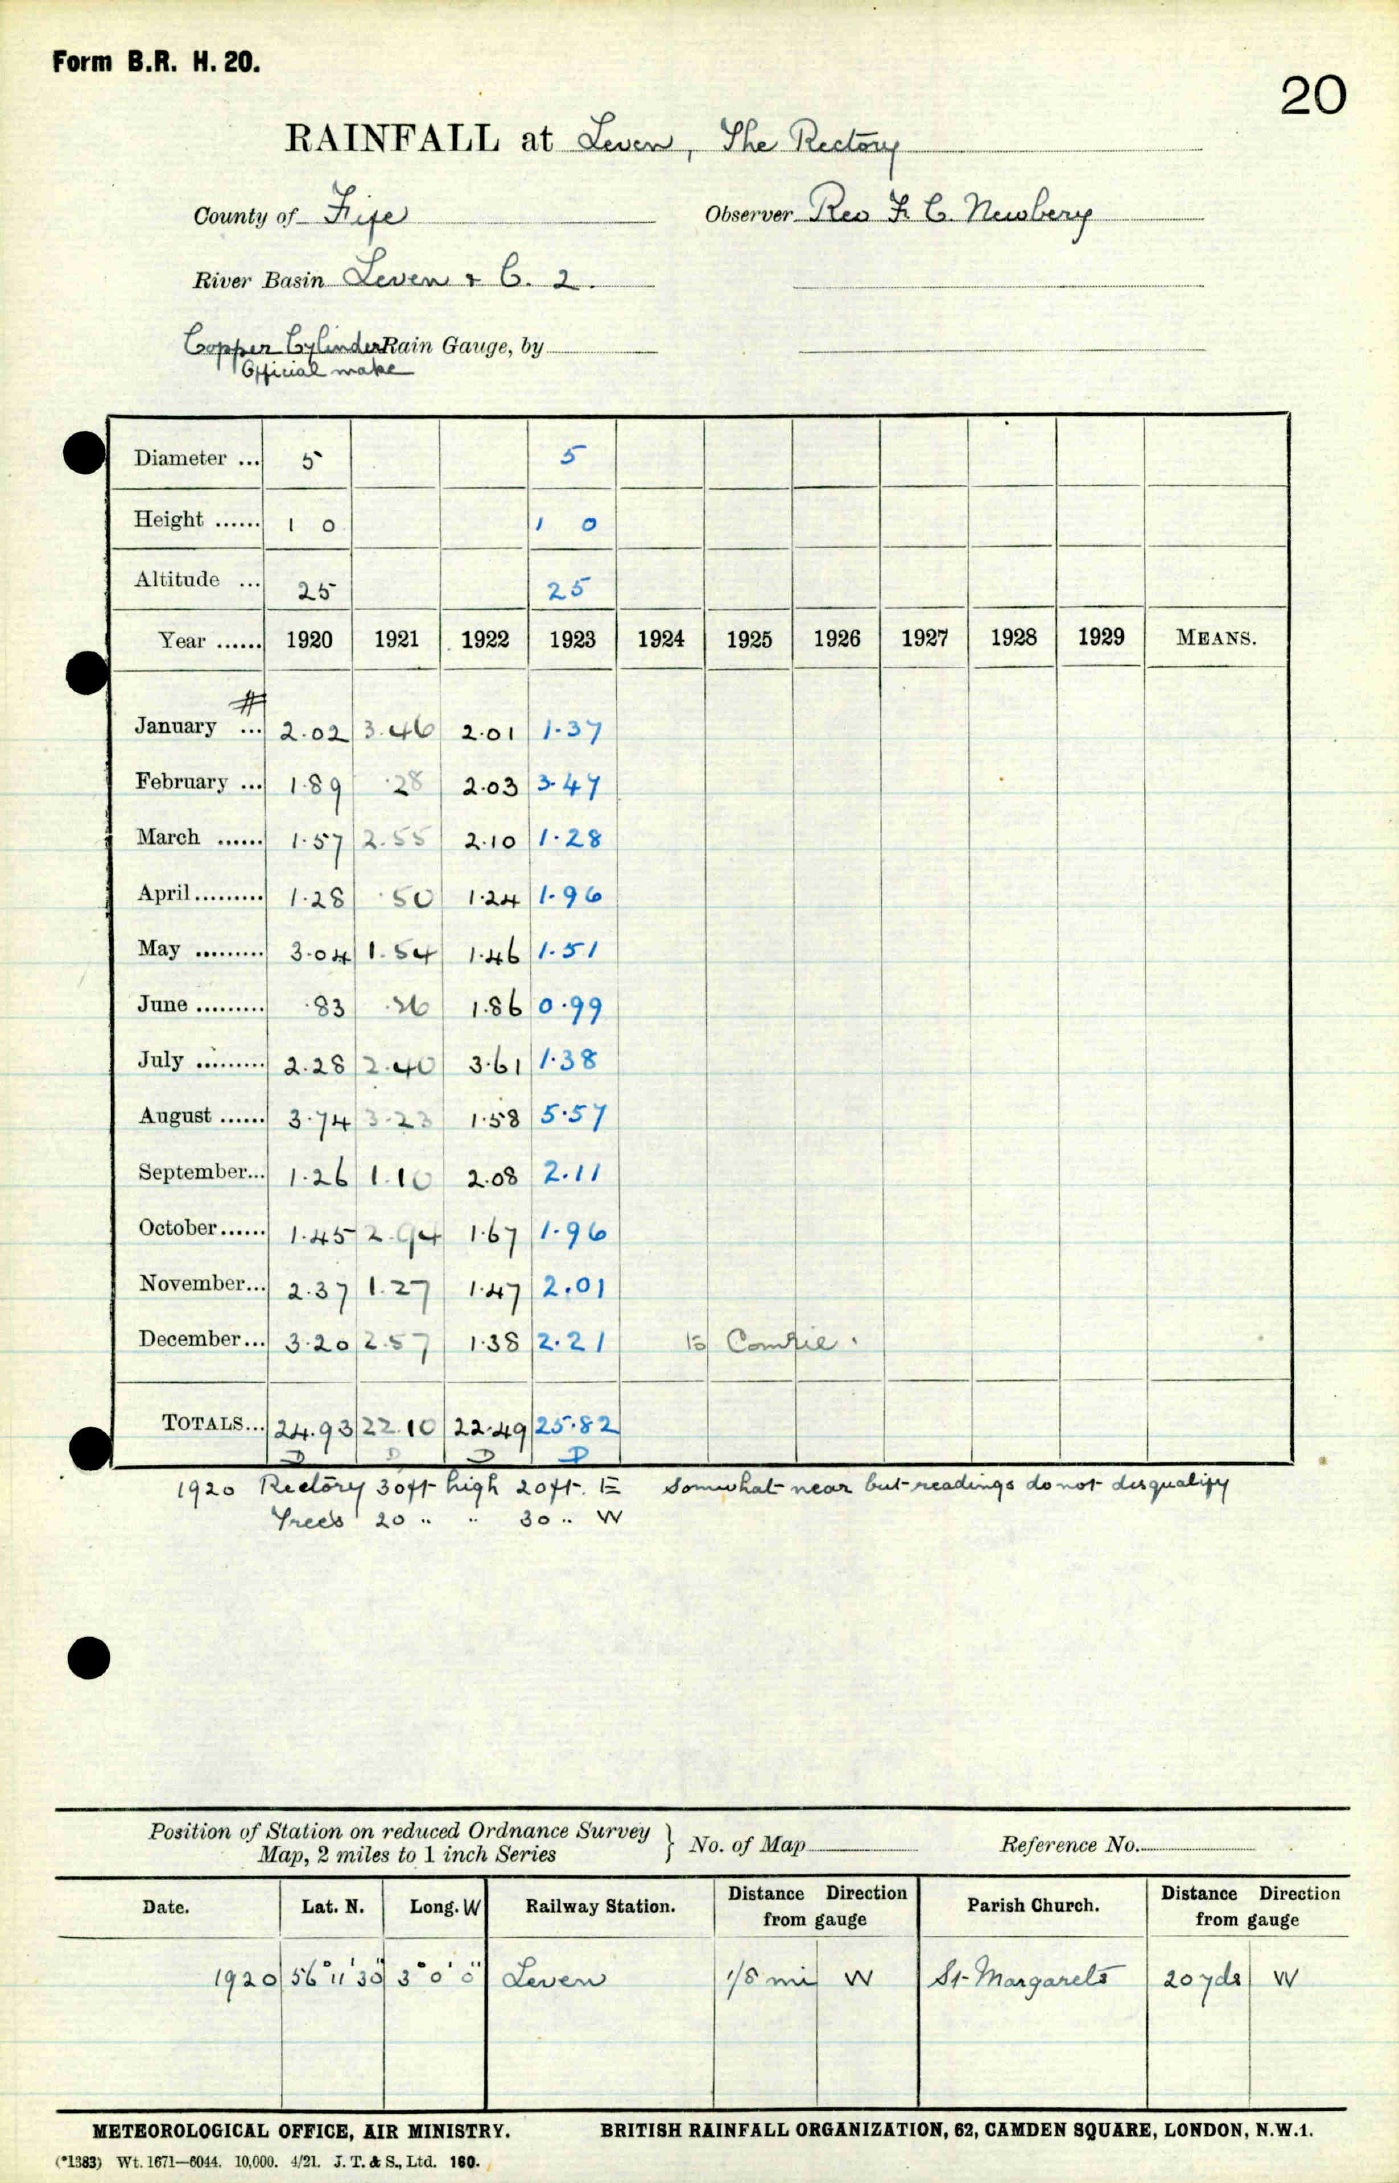 Form B.R. H. 20.
20
RAINFALL at Leven, The Rectory
County of Fife Observer Rev F. C. Newbery
River Basin Leven & C. 2.
Copper Cylinder Rain Gauge, by
Official make
Diameter ... 5 5
Height ...... 1 0 1 0
Altitude ... 25 25
Year ...... 1920 1921 1922 1923 1924 1925 1926 1927 1928 1929 MEANS.
#
January ... 2.02 3.46 2.01 1.37
February ... 1.89 .28 2.03 3.47
March ...... 1.57 2.55 2.10 1.28
April ......... 1.28 .50 1.24 1.96
May ......... 3.04 1.54 1.46 1.51
June ......... .83 .26 1.86 0.99
July ......... 2.28 2.40 3.61 1.38
August ...... 3.74 3.23 1.58 5.57
September... 1.26 1.10 2.08 2.11
October...... 1.45 2.94 1.67 1.96
November... 2.37 1.27 1.47 2.01
December... 3.20 2.57 1.38 2.21 to Comrie.
TOTALS... 24.93 22.10 22.49 25.82
D D D D
1920 Rectory 30ft high 20ft. E Somewhat near but readings do not disqualify
Trees 20 " " 30 " W
Position of Station on reduced Ordnance Survey Map, 2 miles to 1 inch Series } No. of Map Reference No.
Date. Lat. N. Long. W Railway Station. Distance Direction from gauge Parish Church. Distance Direction from gauge
1920 56° 11' 30" 3° 0' 0" Leven 1/8 mi W St Margarets 20 yds W
METEOROLOGICAL OFFICE, AIR MINISTRY. BRITISH RAINFALL ORGANIZATION, 62, CAMDEN SQUARE, LONDON, N.W.1.
(*1383) Wt. 1671—6044. 10,000. 4/21. J. T. & S., Ltd. 160.